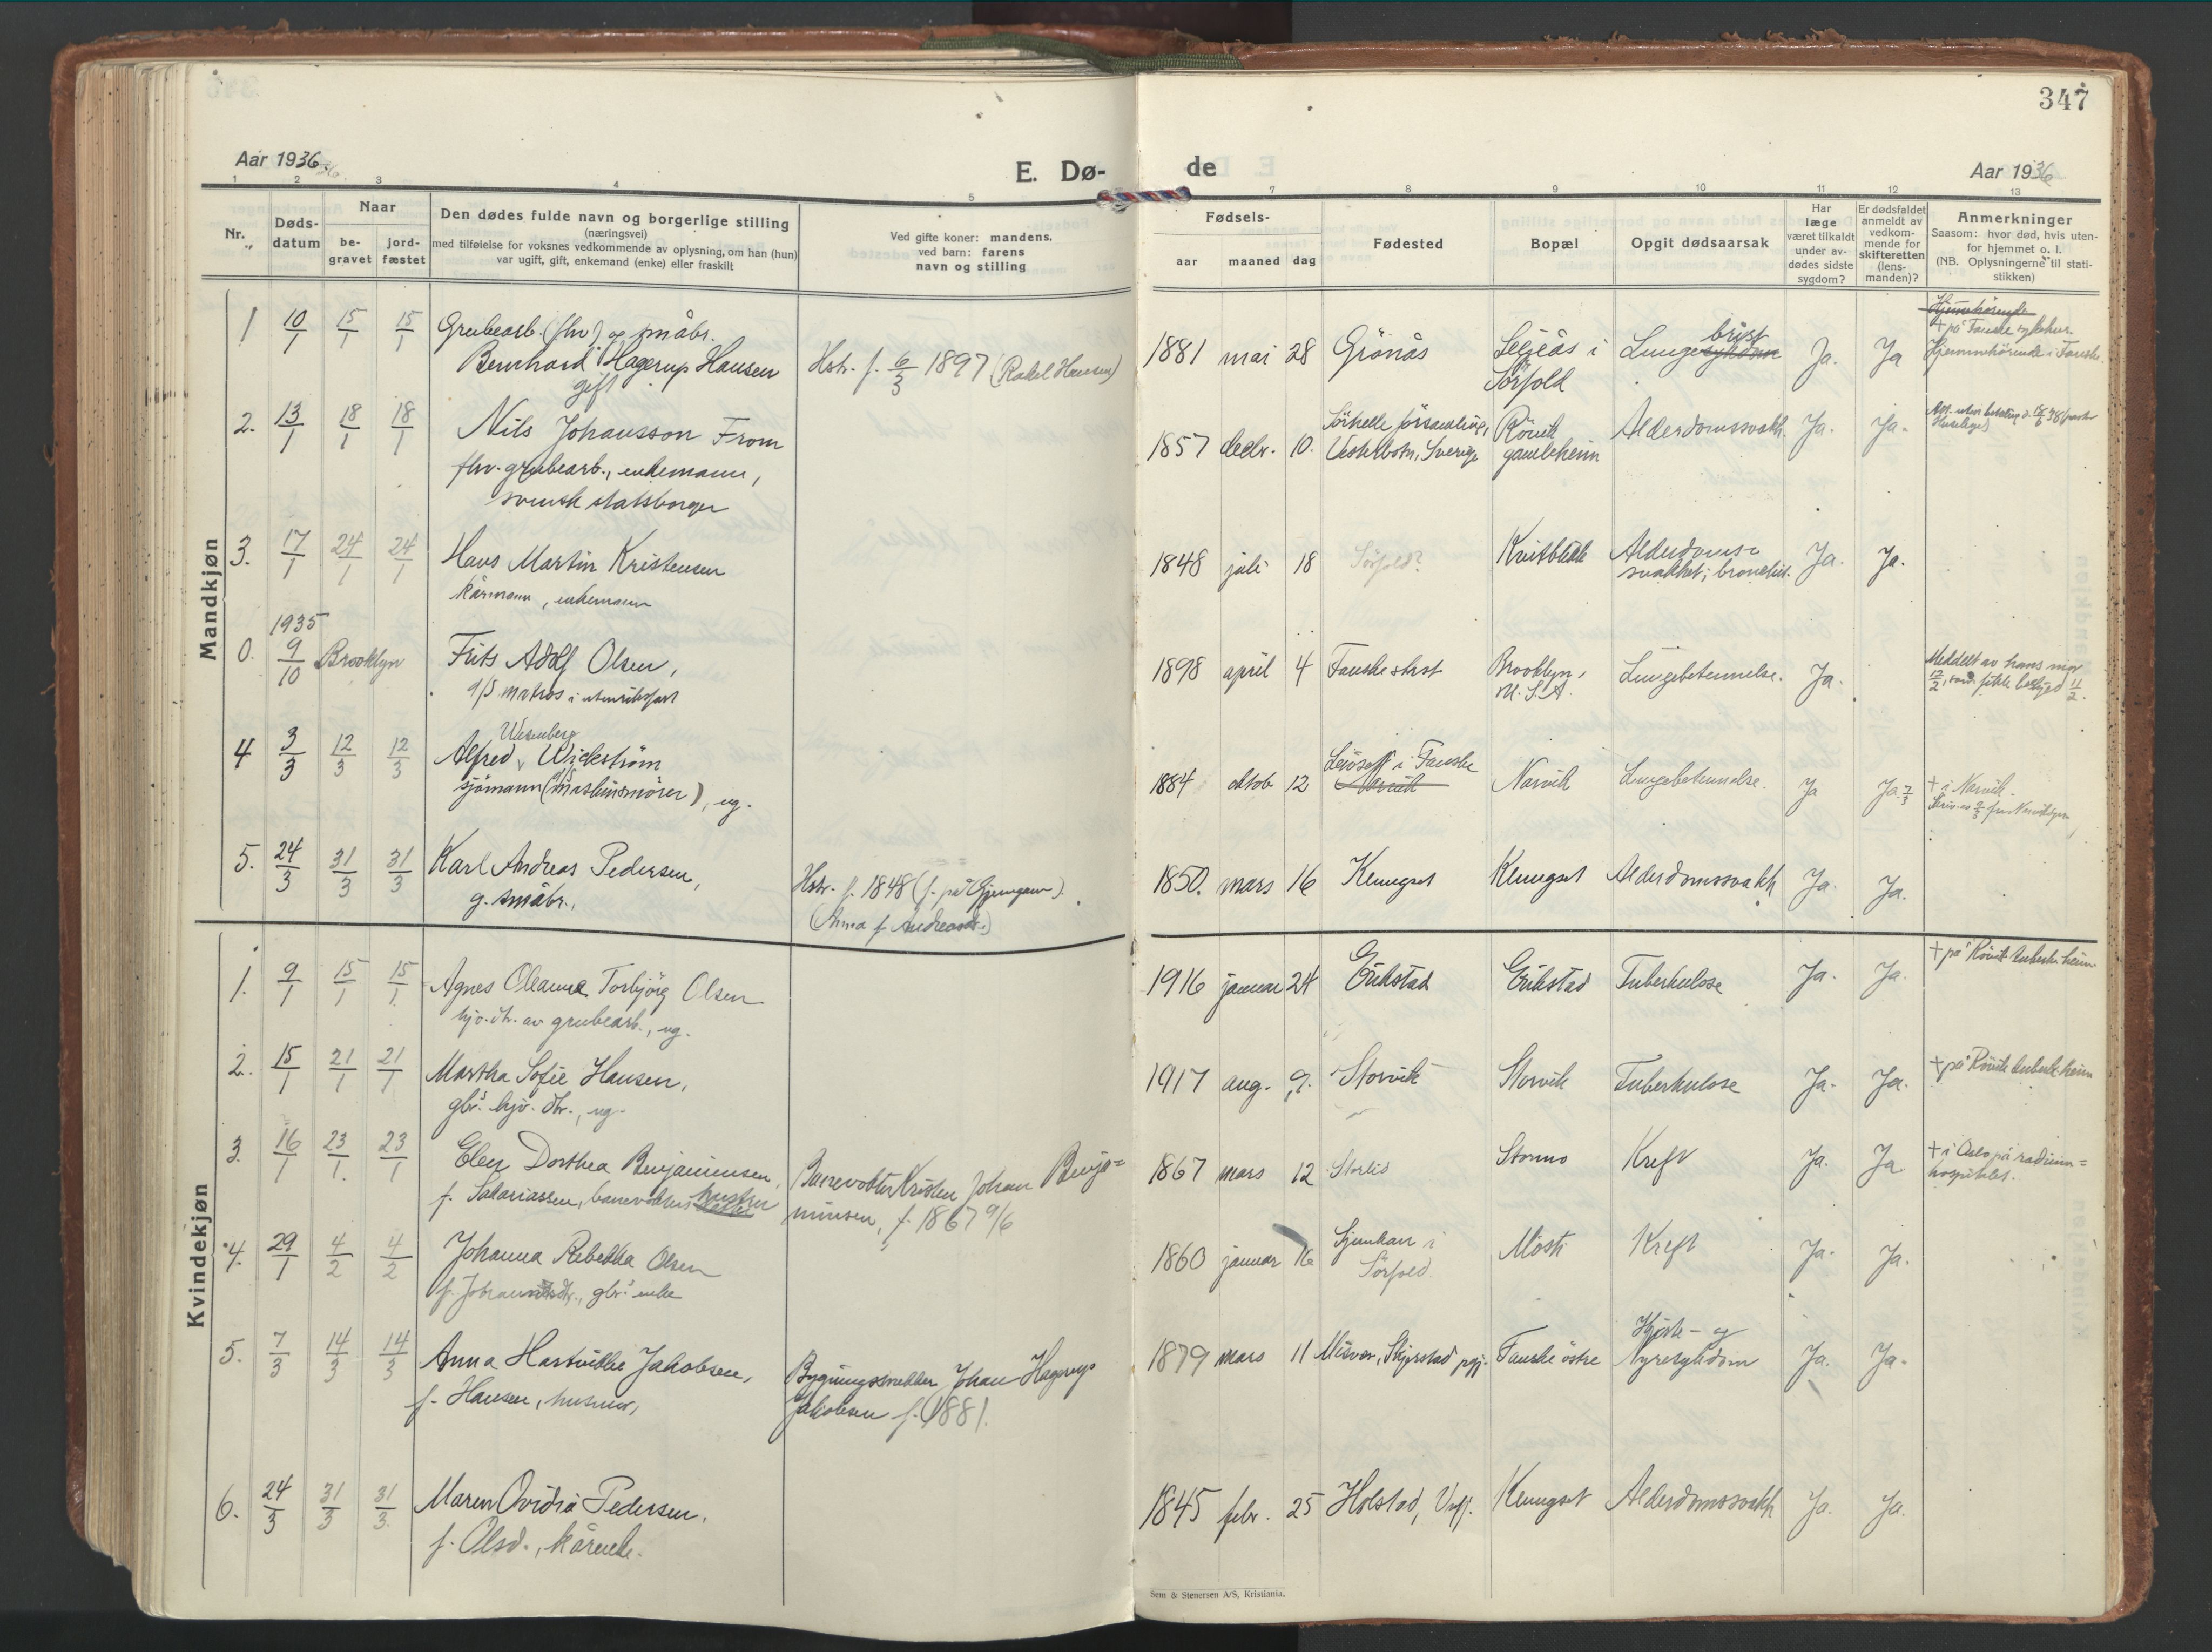 347
Aar 1936.
E. Dø-
de
Aar 1936
1 2 3 4 5
7 8 9 10 11 12 13
Nr.
Døds-
datum
Naar
be-
gravet
jord-
fæstet
Den dødes fulde navn og borgerlige stilling
(næringsvei)
med tilføielse for voksnes vedkommende av oplysning, om han (hun)
var ugift, gift, enkemand (enke) eller fraskilt
Ved gifte koner: mandens,
ved barn: farens
navn og stilling
Fødsels-
aar maaned dag
Fødested
Bopæl
Opgit dødsaarsak
Har
læge
været tilkaldt
under av-
dødes sidste
sygdom?
Er dødsfaldet
anmeldt av
vedkom-
mende for
skifteretten
(lens-
manden)?
Anmerkninger
Saasom: hvor død, hvis uten-
for hjemmet o. l.
(NB. Oplysningerne til stati-
stikken)
Mandkjøn
1 10/1 15/1 15/1 Grubearb. (fhv.) og småbr.
Bernhard Hagerup Hansen
gift
Hstr. f. 6/3 1897 (Rakel Hansen)
1881 mai 28 Grönås
i
Sørfold
Lungebrist
Ja. Ja
Hjemmhörende
+ på Fauske sykehus.
Hjemmhörende i Fauske.
2. 13/1 18/1 18/1 Nils Johansson From
fhv. grubearb., enkemann,
svensk statsborger
1857 decbr. 10.
Vesterbotn, Sverige
Rövik
gamleheim
Alderdomssvakh. Ja. Ja.
3. 17/1 24/1 24/1 Hans Martin Kristensen
kårmann, enkemann
1848 juli 18 Sørfold? Kvitblikk
Alderdoms-
svakhet; bronchit. Ja. Ja.
1935
0. 9/10 Brooklyn Frits Adolf Olsen,
matros i utenriksfart
1898 april 4 Fauske
Brooklyn,
U. S. A.
Lungebetennelse. Ja.
Meddelt av hans mor
12/2, som fikk beskjed 11/2.
4 3/3 12/3 12/3
Wesenberg
Alfred Wickström
sjömann (maskinsmörer), ug.
1884 oktob 12
i Fauske
Narvik
Narvik Lungebetennelse. Ja Ja 7/3
+ i Narvik.
5. 24/3 31/3 31/3 Karl Andreas Pedersen,
g. småbr.,
Hstr. f. 1848 (f. på Gjemgam)
(Anna f. Andreasdr.)
1850. mars 16 Klungset Klungset Alderdomssvakh Ja. Ja.
Kvindekjøn
1. 9/1 15/1 15/1 Agnes Oleanna Torbjörg Olsen
hjv. dtr. av grubearb., ug.
1916 januar 24 Erikstad Erikstad Tuberkulose Ja. Ja.
+ på Rövik tuberk.heim
2. 15/1 21/1 21/1 Martha Sofie Hansen,
gbr.s hjv. dtr., ug.
1917 aug. 9. Storvik Storvik Tuberkulose Ja. Ja.
+ på Rövik tuberk.heim
3. 16/1 23/1. 23/1 Elen Dorthea Benjaminsen,
f. Sakariassen, banevokters hustru
Banevokter Kristen Johan Benja=
minsen, f. 1867 9/6
1867 mars 12 Storlid Stormo Kreft Ja. Ja
+ i Oslo på radium=
hospitalet.
4. 29/1 4/2 4/2 Johanna Rebekka Olsen
f. Johannesdtr., gbr.s enke
1860 januar 16
i
Sørfold.
Mosti Kreft Ja. Ja.
5. 7/3 14/3 14/3 Anna Hartvikke Jakobsen,
f. Hansen, husmor,
Bygningssnekker Johan Hagerup
Jakobsen f. 1881.
1879 mars 11 Misvær, Skjerstad pgj. Fauske östre
Hjerte- og
Nyresykdom Ja. Ja.
6. 24/3 31/3 31/3. Maren Ovidia Pedersen,
f. Olsd., kårenke.
1845 febr. 25 Holstad, Klungset Alderdomssvakh Ja. Ja.
Sem & Stenersen A/S, Kristiania.